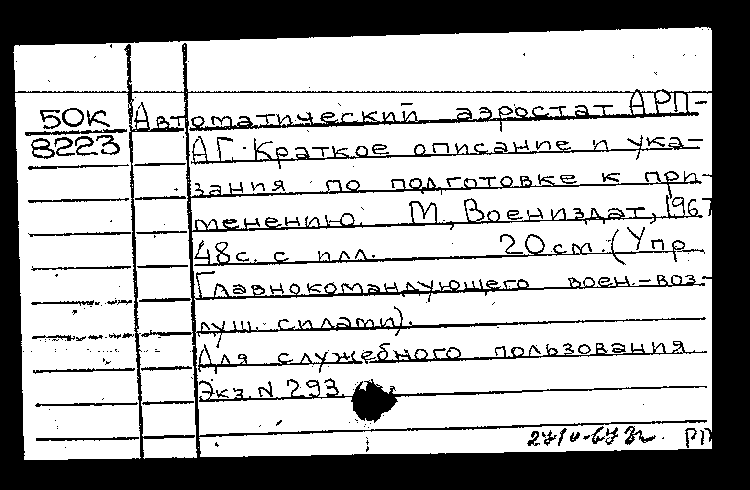 50К Автоматический аэростат АРП-
8223 АГ. Краткое описание и ука-
зания по подготовке к при-
менению. М., Воениздат, 1967
48с. с илл. 20см. (Упр.
Главнокомандующего воен.-воз-
душ. силами).
Для служебного пользования
Экз. N 293.